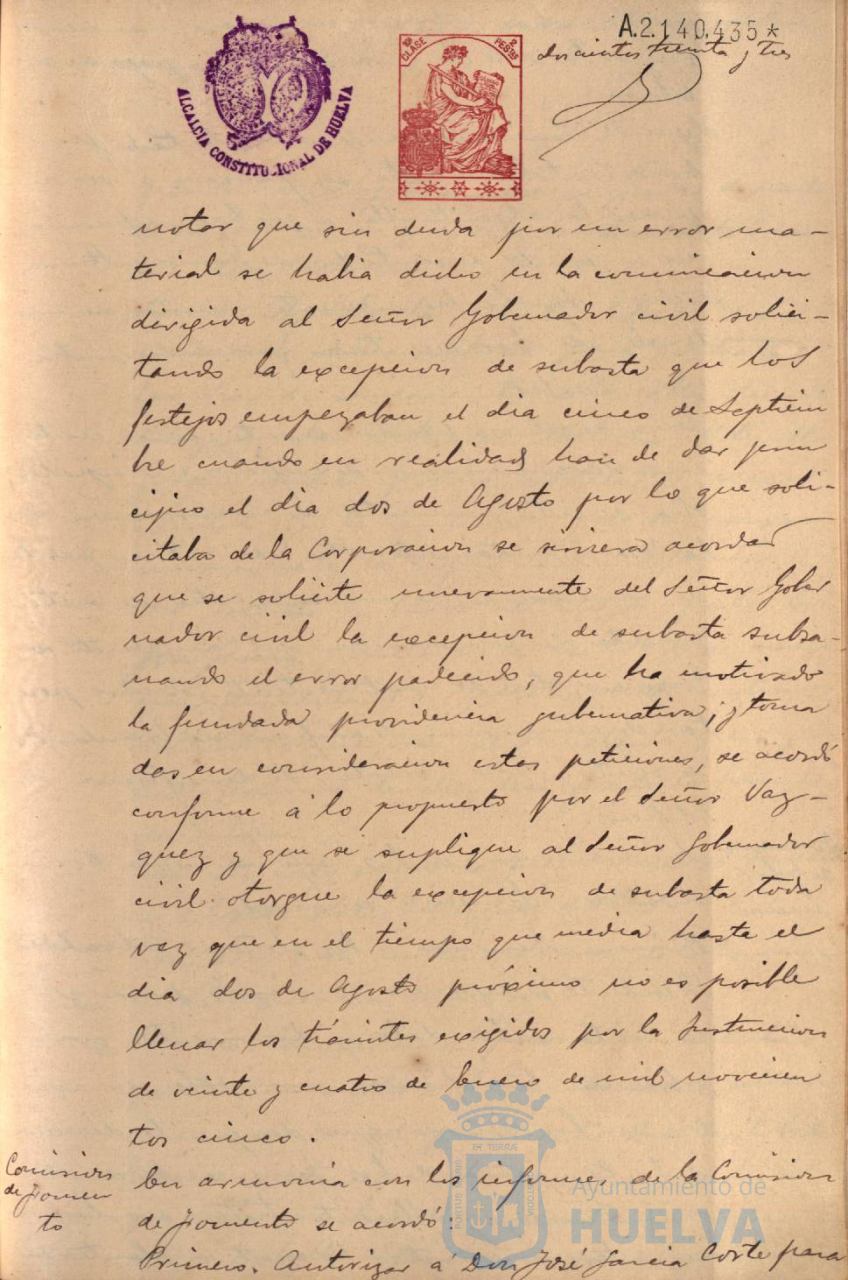 A.2.140.435*
doscientos treinta y tres
10ª CLASE
2 PESTAS
ALCALCIA CONSTITUCIONAL DE HUELVA
notar que sin duda por un error ma-
terial se habia dicho en la comunicacion
dirigida al Señor Gobernador civil solici-
tando la excepcion de subasta que los
festejos empezaban el dia cinco de Septiem
bre cuando en realidad han de dar prin
cipio el dia dos de Agosto por lo que soli-
citaba de la Corporacion se sirviera acordar
que se solicite nuevamente del Señor Gober
nador civil la excepcion de subasta subsa-
nando el error padecido, que ha motivado
la fundada providencia gubernativa; y toma
das en consideracion estas peticiones, se acordó
conforme á lo propuesto por el Señor Vaz-
quez y que se suplique al Señor Gobernador
civil otorgue la excepcion de subasta toda
vez que en el tiempo que media hasta el
dia dos de Agosto próximo no es posible
llenar los trámites exigidos por la Instruccion
de veinte y cuatro de Enero de mil novecien
tos cinco.
Comision
de fomen
to
En armonia con los informes de la Comision
de fomento se acordó:
Primero. Autorizar á Don José Garcia Corte para
Ayuntamiento de
HUELVA